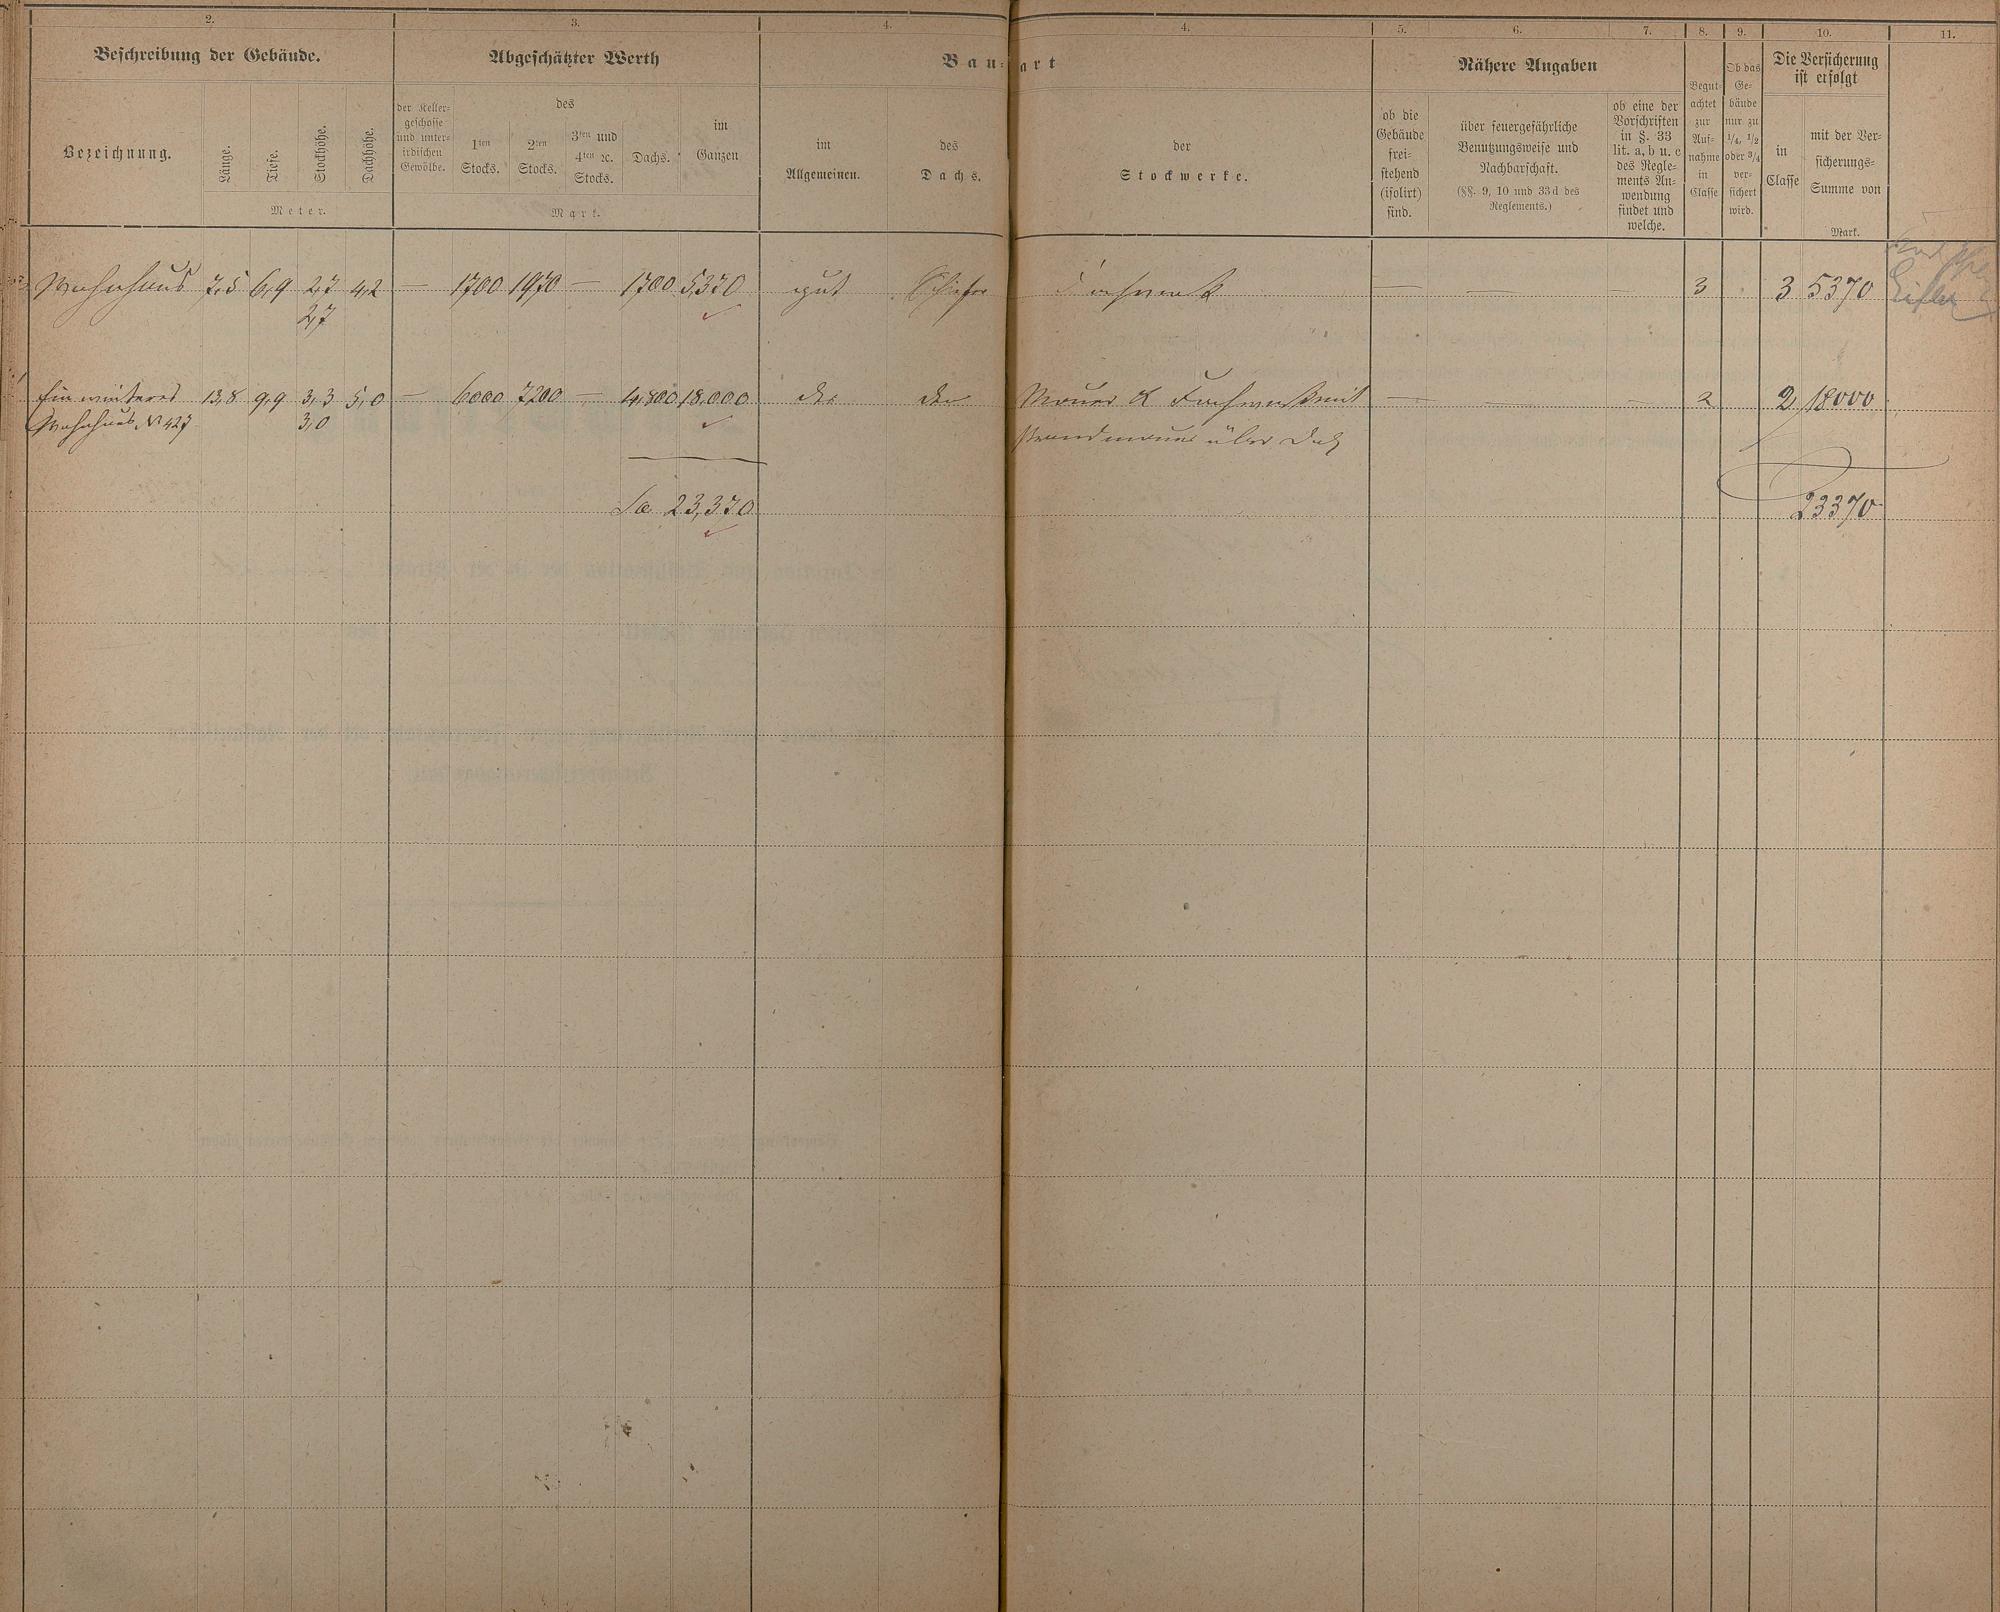 2. 3. 4. 4. 5. 6. 7. 8. 9. 10. 11.
Beschreibung der Gebäude.
Abgeschätzter Werth
Bau-art
Nähere Angaben
Bezeichnung.
Länge.
Tiefe.
Stockhöhe.
Dachhöhe.
Meter.
der Keller-
geschosse
und unter-
irdischen
Gewölbe.
des
1ten
Stocks.
2ten
Stocks.
3ten und
4ten ec.
Stocks.
Dachs.
im
Ganzen
Mark.
im
Allgemeinen.
des
Dachs.
der
Stockwerke.
ob die
Gebäude
frei-
stehend
(isolirt)
sind.
über feuergefährliche
Benutzungsweise und
Nachbarschaft.
(§§. 9, 10 und 33d des
Reglements.)
ob eine der
Vorschriften
in §. 33
lit. a, b u. c
des Regle-
ments An-
wendung
findet und
welche.
Begut-
achtet
zur
Auf-
nahme
in
Classe
Ob das
Ge-
bäude
nur zu
1/4, 1/2
oder 3/4
ver-
sichert
wird.
Die Versicherung
ist erfolgt
in
Classe
mit der Ver-
sicherungs-
Summe von
Mark.
Wohnhaus 7,5 6,9 2,7 4,2 — 1700 1970 — 1700 5,370 gut Schiefer Fachwerk — — — 3 3 5370
2,7
Ein weiteres 13,8 9,9 3,3 5,0 — 6000 7200 — 4,800 18,000 do. do. Mauer & Fachwerk mit — — — 2 2 18000
Wohnhaus No 427 3,0 Brandmauer über Dach
Sa. 23,370 23370